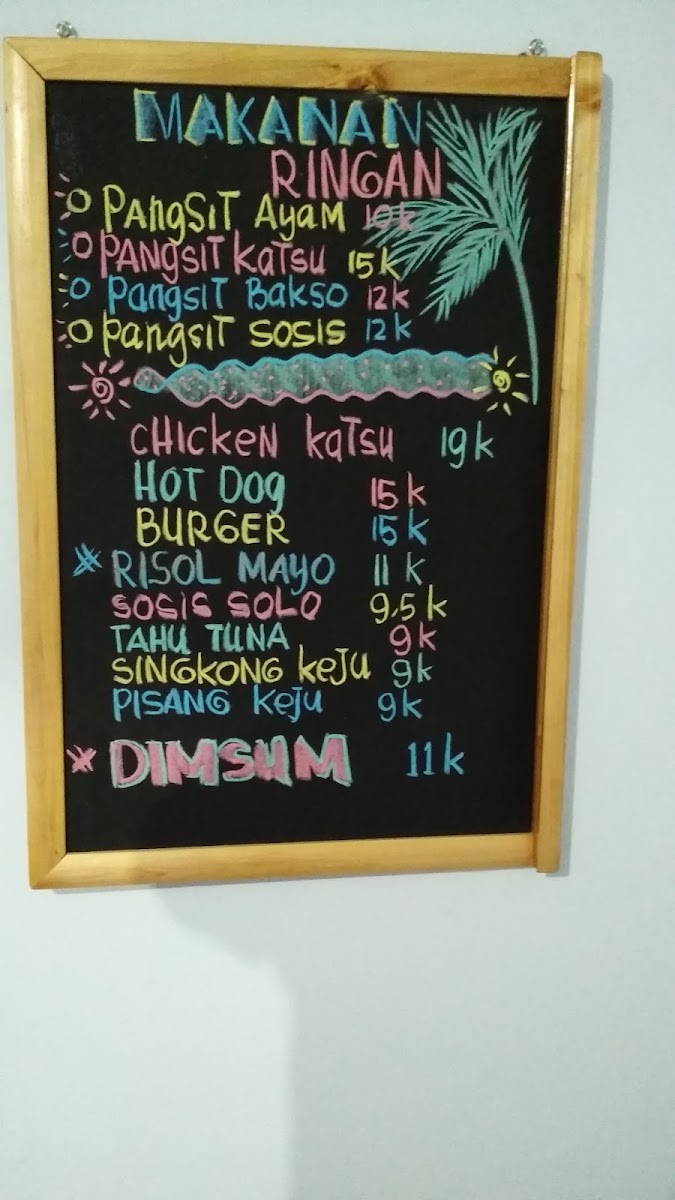 MAKANAN
RINGAN
PANgSiT AyAM 10k
PANgSiT KaTsu 15k
PangsiT Bakso 12k
PangsiT sosis 12k
CHICKEN KaTsu 19k
HOT Dog 15k
BURGER 15k
RISOL MAYO 11k
SOSIS SOLO 9,5k
TAHU TUNA 9k
SINGKONG Keju 9k
PISANG Keju 9k
DIMSUM 11k